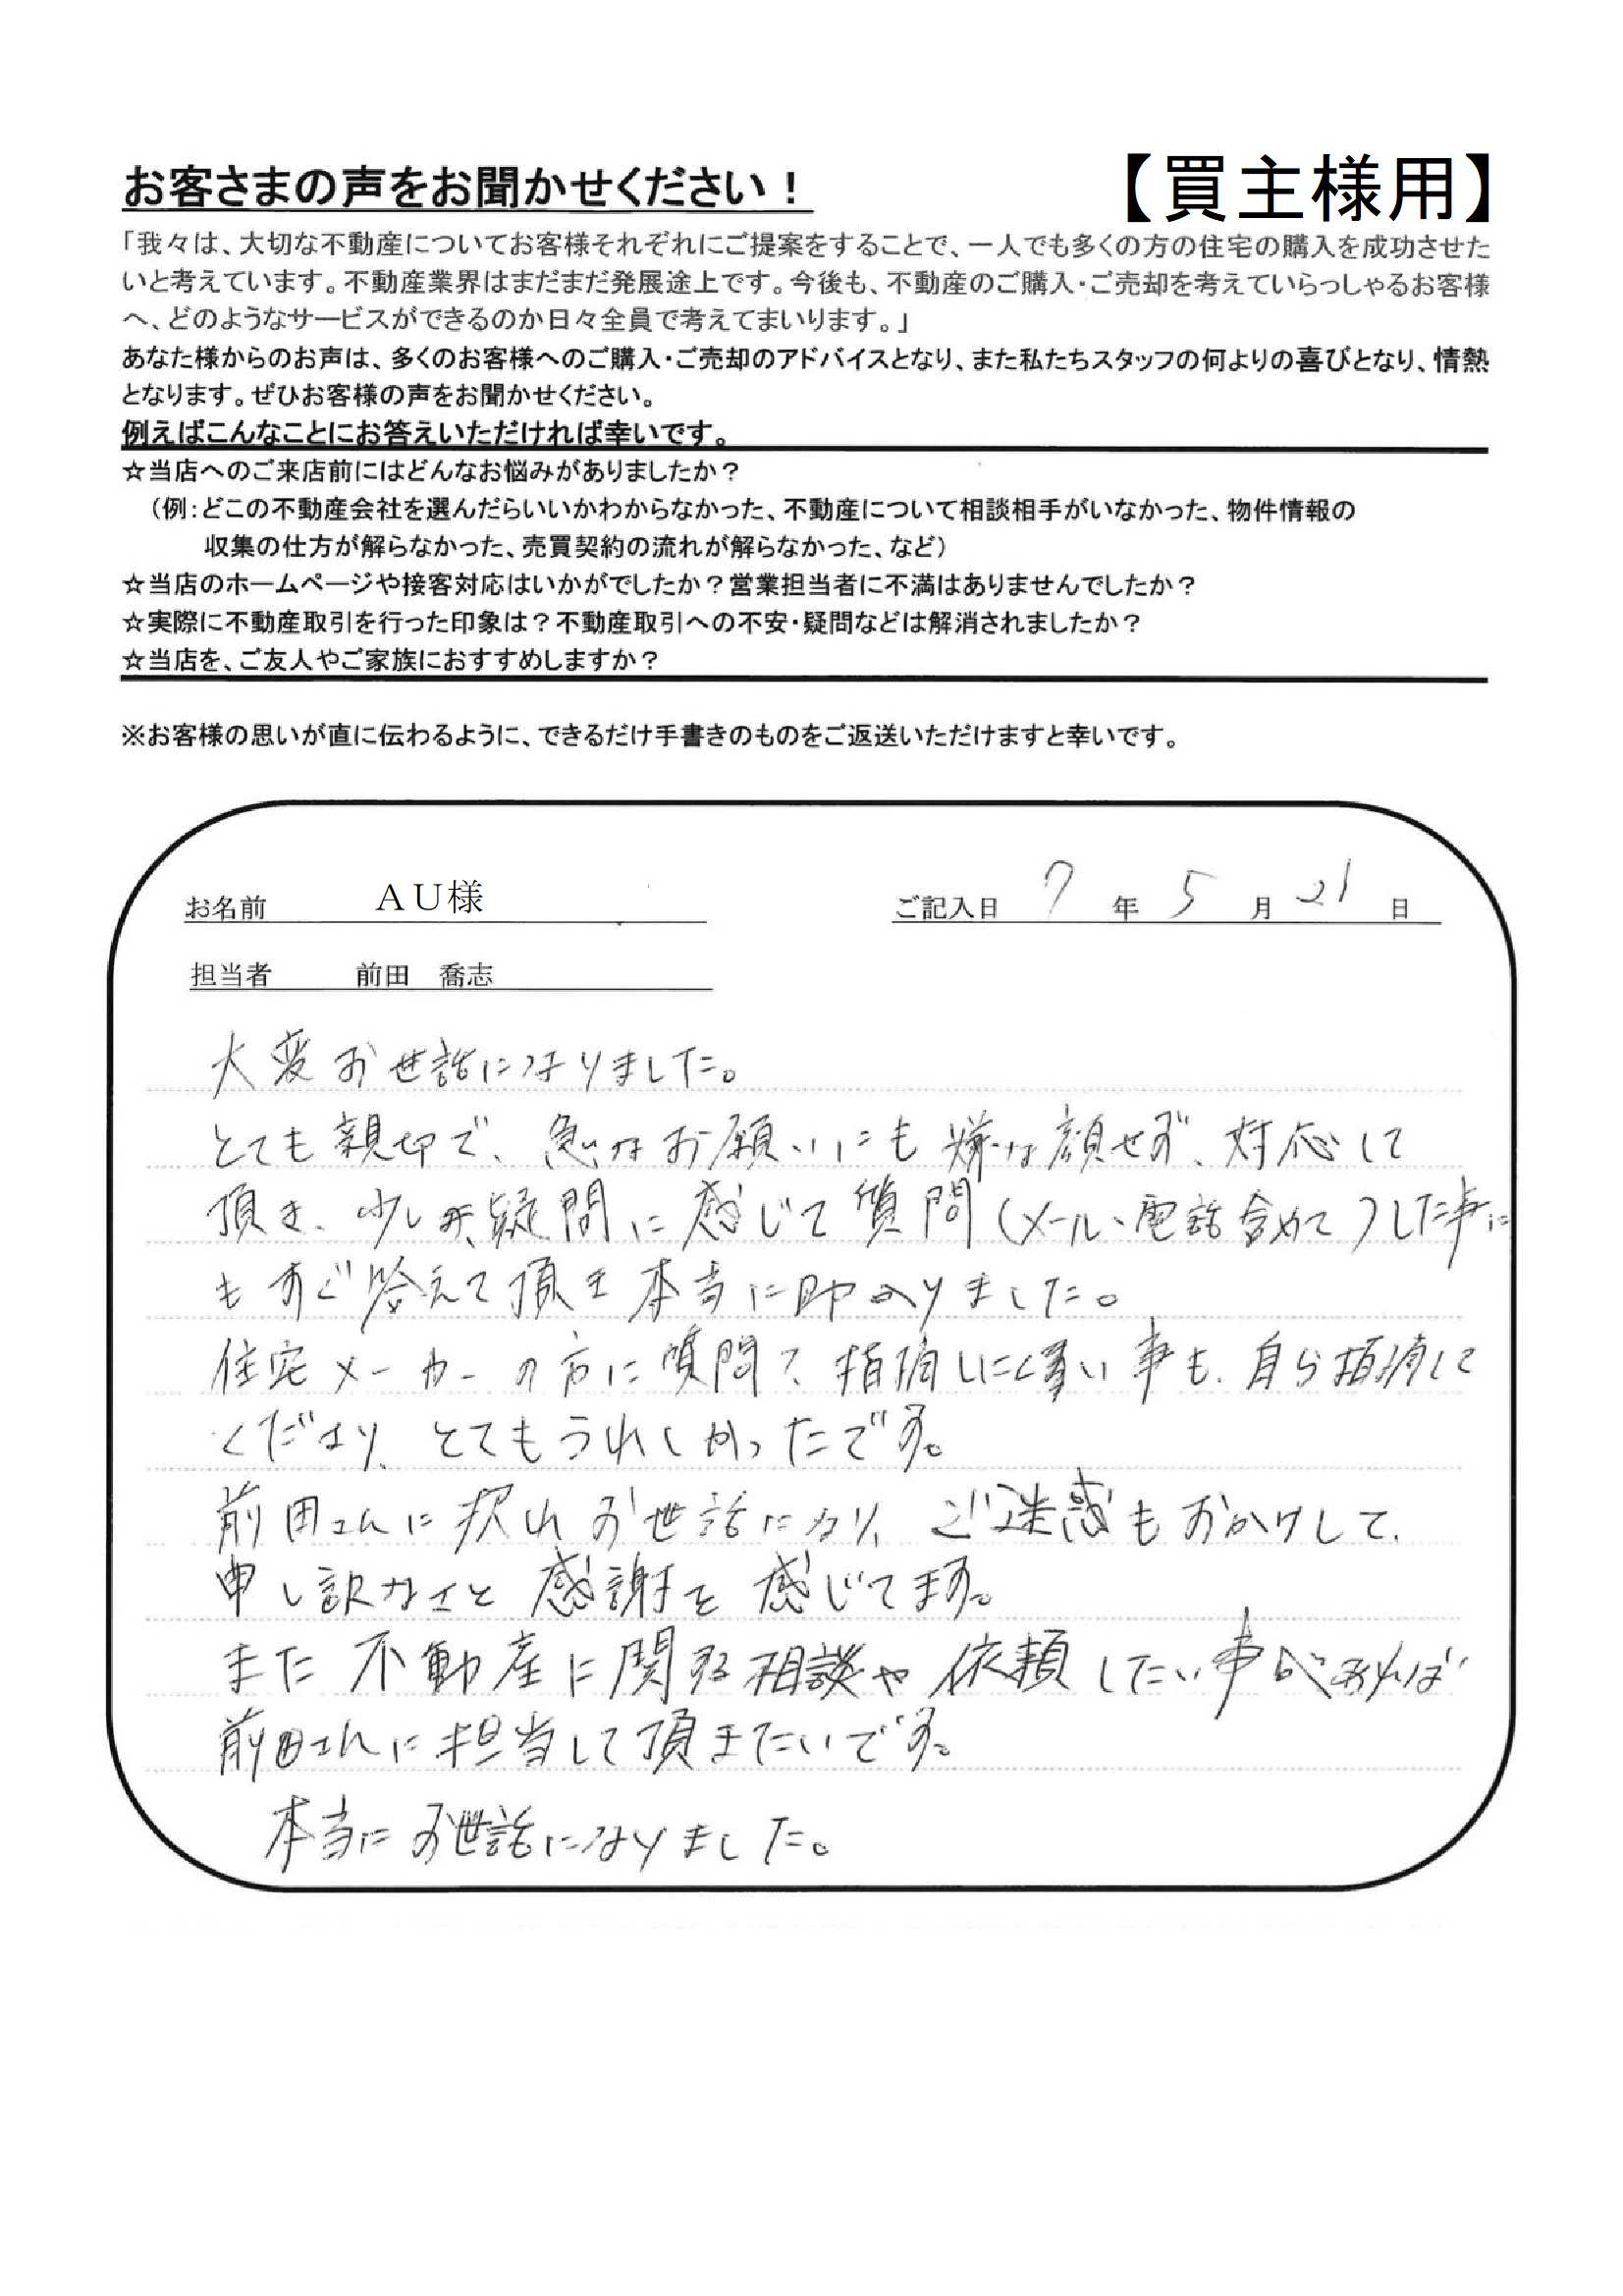 お客さまの声をお聞かせください！
【買主様用】
「我々は、大切な不動産についてお客様それぞれにご提案をすることで、一人でも多くの方の住宅の購入を成功させた
いと考えています。不動産業界はまだまだ発展途上です。今後も、不動産のご購入・ご売却を考えていらっしゃるお客様
へ、どのようなサービスができるのか日々全員で考えてまいります。」
あなた様からのお声は、多くのお客様へのご購入・ご売却のアドバイスとなり、また私たちスタッフの何よりの喜びとなり、情熱
となります。ぜひお客様の声をお聞かせください。
例えばこんなことにお答えいただければ幸いです。
☆当店へのご来店前にはどんなお悩みがありましたか？
（例：どこの不動産会社を選んだらいいかわからなかった、不動産について相談相手がいなかった、物件情報の
収集の仕方が解らなかった、売買契約の流れが解らなかった、など）
☆当店のホームページや接客対応はいかがでしたか？営業担当者に不満はありませんでしたか？
☆実際に不動産取引を行った印象は？不動産取引への不安・疑問などは解消されましたか？
☆当店を、ご友人やご家族におすすめしますか？
※お客様の思いが直に伝わるように、できるだけ手書きのものをご返送いただけますと幸いです。
お名前 ＡＵ様 ご記入日 7 年 5 月 21 日
担当者 前田 喬志
大変お世話になりました。
とても親切で、急なお願いにも嫌な顔せず、対応して
頂き、少しの疑問に感じて質問（メール、電話含めて）した事に
もすぐ答えて頂き本当に助かりました。
住宅メーカーの方に質問や指摘しにくい事も、自ら指摘して
くださり、とてもうれしかったです。
前田さんに お世話になり、ご迷惑もおかけして、
申し訳なさと感謝を感じてます。
また不動産に関する相談や依頼したい事があれば
前田さんに担当して頂きたいです。
本当にお世話になりました。